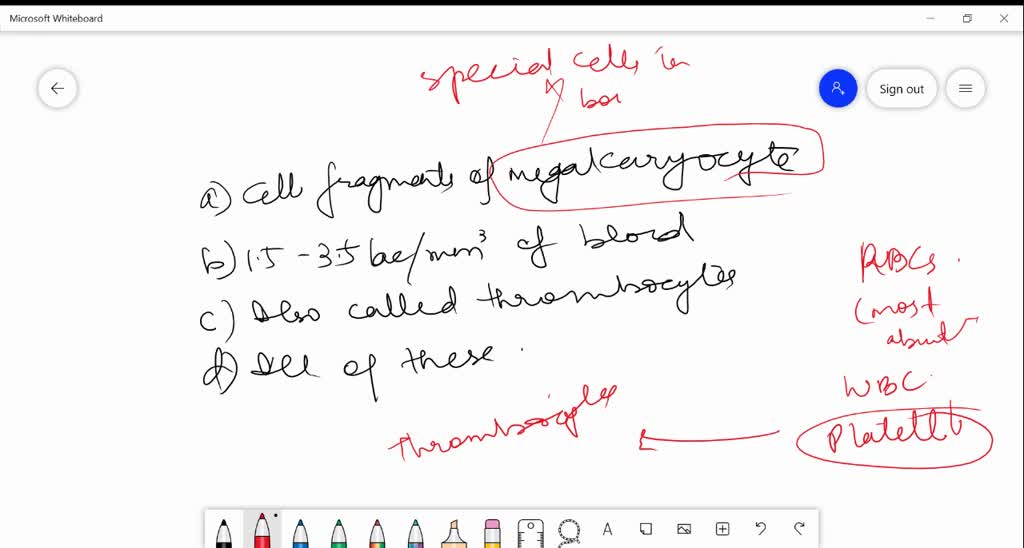 Microsoft Whiteboard
Sign out
special cells in
bo
a) Cell fragments of megakaryocyte
b) 1.5 - 3.5 lac/mm³ of blood
c) Also called thrombocytes
d) All of these.
RBCs.
(most
abunt
WBC.
Platelet
thrombocytes
A